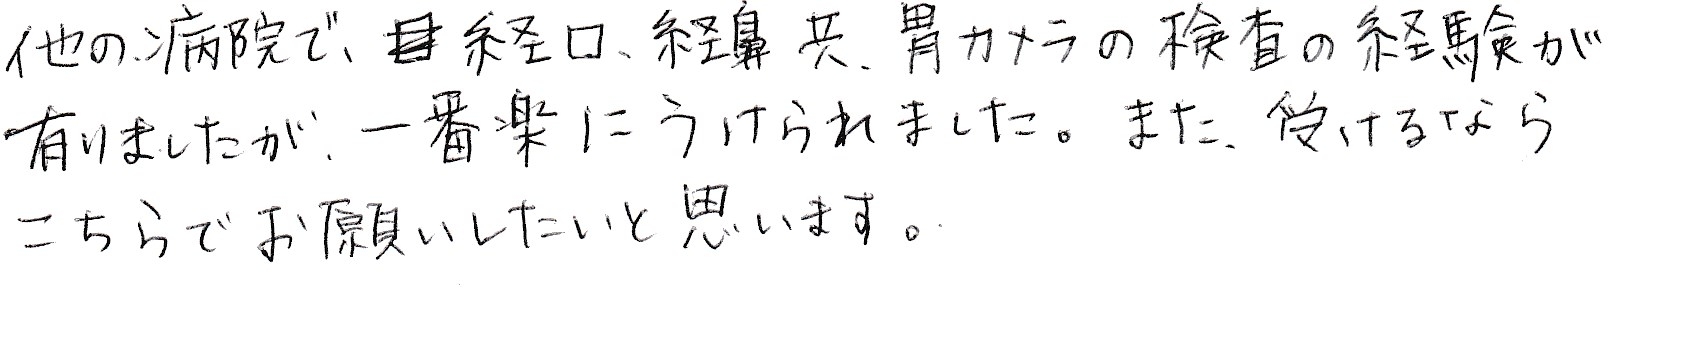 他の病院で、経口、経鼻共、胃カメラの検査の経験が
有りましたが、一番楽にうけられました。また、受けるなら
こちらでお願いしたいと思います。